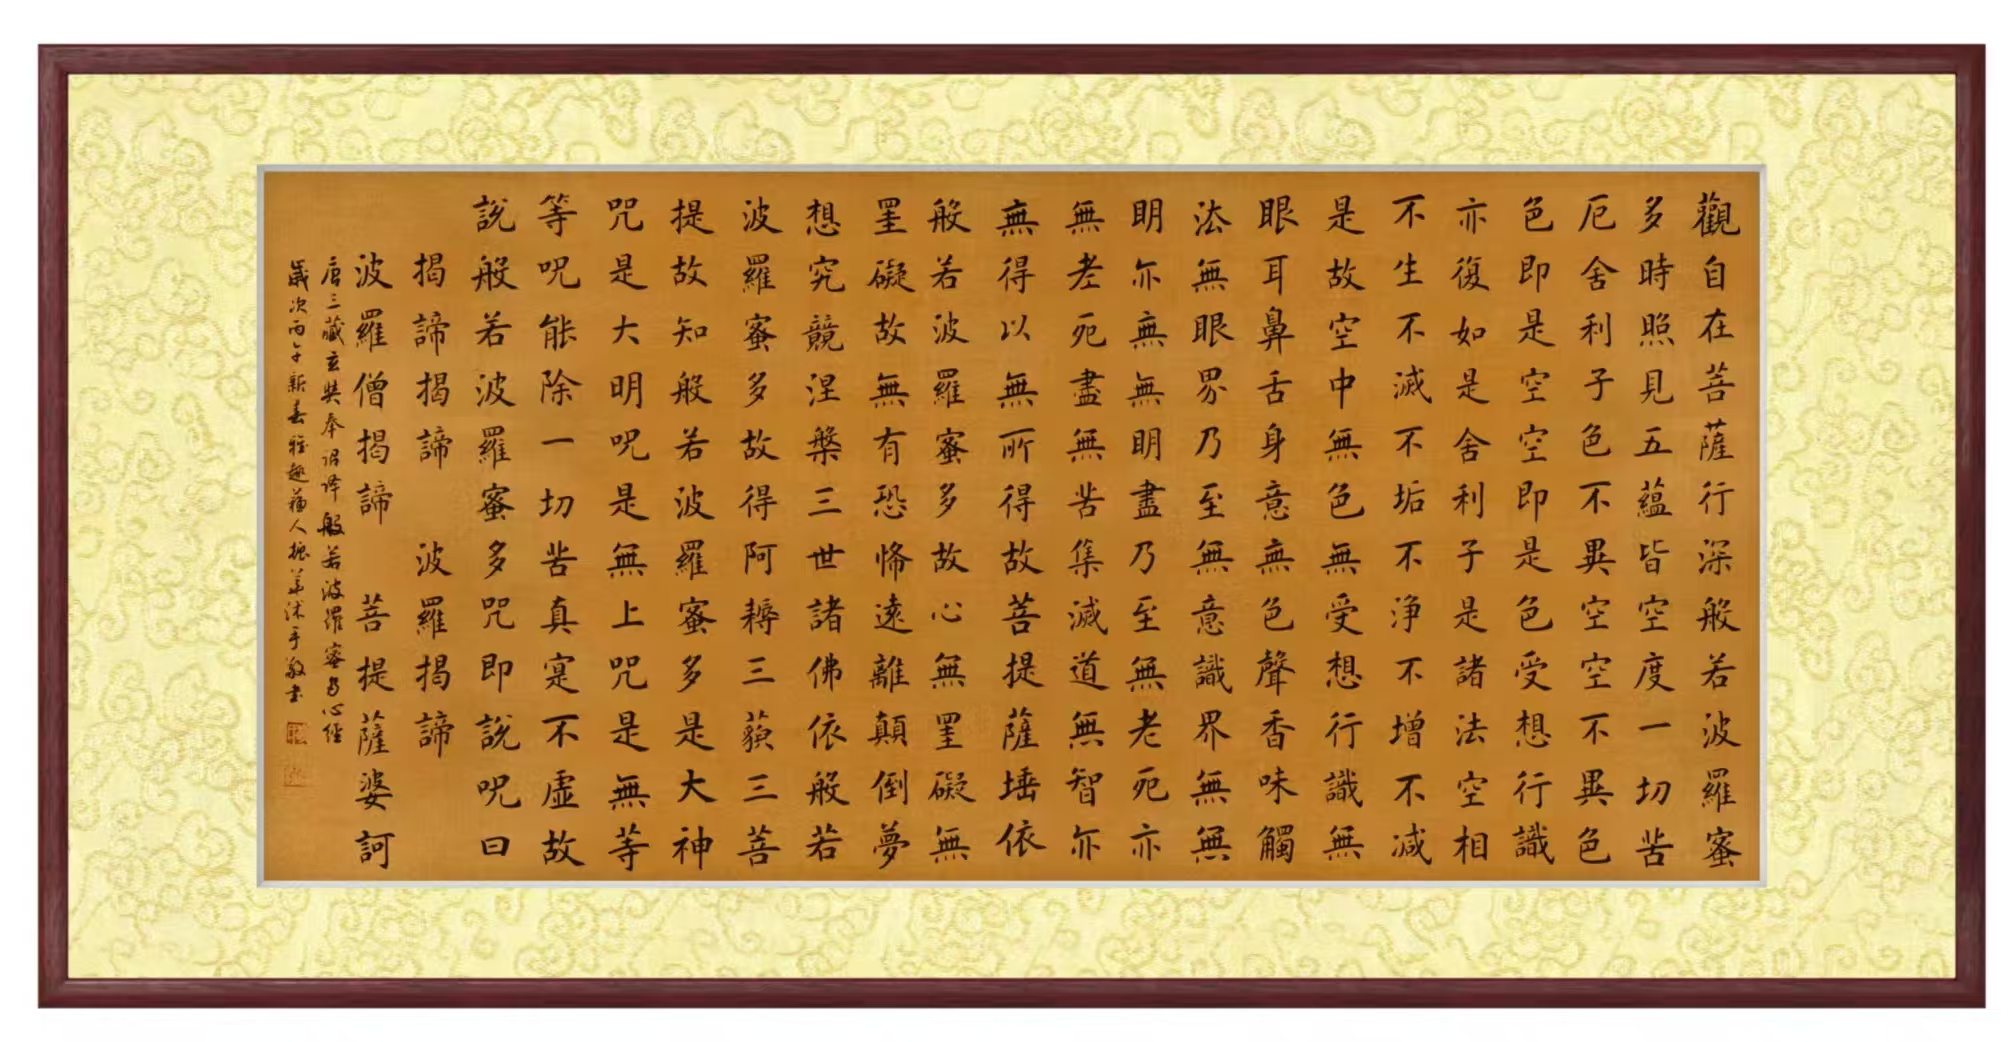 觀自在菩薩行深般若波羅蜜
多時照見五蘊皆空度一切苦
厄舍利子色不異空空不異色
色即是空空即是色受想行識
亦復如是舍利子是諸法空相
不生不滅不垢不淨不增不減
是故空中無色無受想行識無
眼耳鼻舌身意無色聲香味觸
法無眼界乃至無意識界無無
明亦無無明盡乃至無老死亦
無老死盡無苦集滅道無智亦
無得以無所得故菩提薩埵依
般若波羅蜜多故心無罣礙無
罣礙故無有恐怖遠離顛倒夢
想究竟涅槃三世諸佛依般若
波羅蜜多故得阿耨三藐三菩
提故知般若波羅蜜多是大神
咒是大明咒是無上咒是無等
等咒能除一切苦真寔不虛故
說般若波羅蜜多咒即說咒曰
揭諦揭諦 波羅揭諦
波羅僧揭諦 菩提薩婆訶
唐三藏玄奘奉詔譯般若波羅蜜多心經
歲次丙午新春雅趣蘇人振華沐手敬書